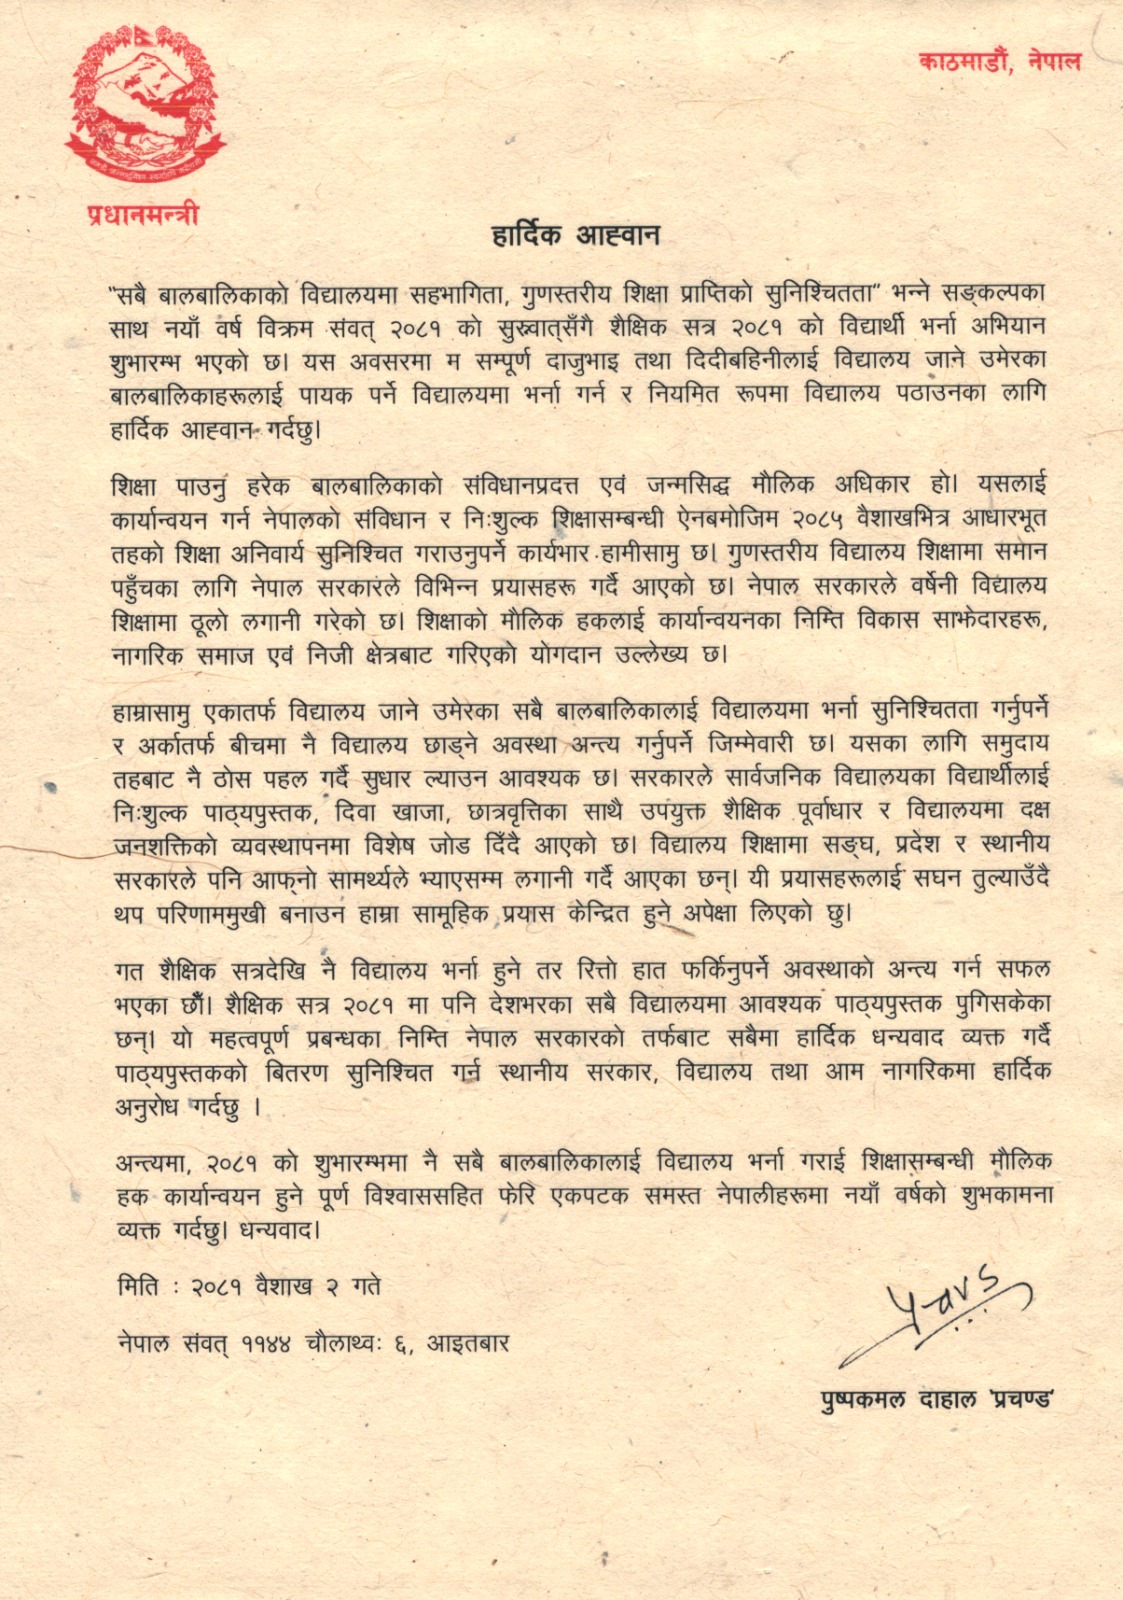 काठमाडौं, नेपाल
प्रधानमन्त्री
हार्दिक आह्वान
"सबै बालबालिकाको विद्यालयमा सहभागिता, गुणस्तरीय शिक्षा प्राप्तिको सुनिश्चितता" भन्ने सङ्कल्पका
साथ नयाँ वर्ष विक्रम संवत् २०८१ को सुरुवात्सँगै शैक्षिक सत्र २०८१ को विद्यार्थी भर्ना अभियान
शुभारम्भ भएको छ। यस अवसरमा म सम्पूर्ण दाजुभाइ तथा दिदीबहिनीलाई विद्यालय जाने उमेरका
बालबालिकाहरूलाई पायक पर्ने विद्यालयमा भर्ना गर्न र नियमित रूपमा विद्यालय पठाउनका लागि
हार्दिक आह्वान गर्दछु।
शिक्षा पाउनु हरेक बालबालिकाको संविधानप्रदत्त एवं जन्मसिद्ध मौलिक अधिकार हो। यसलाई
कार्यान्वयन गर्न नेपालको संविधान र निःशुल्क शिक्षासम्बन्धी ऐनबमोजिम २०८५ वैशाखभित्र आधारभूत
तहको शिक्षा अनिवार्य सुनिश्चित गराउनुपर्ने कार्यभार हामीसामु छ। गुणस्तरीय विद्यालय शिक्षामा समान
पहुँचका लागि नेपाल सरकारले विभिन्न प्रयासहरू गर्दै आएको छ। नेपाल सरकारले वर्षेनी विद्यालय
शिक्षामा ठूलो लगानी गरेको छ। शिक्षाको मौलिक हकलाई कार्यान्वयनका निम्ति विकास साझेदारहरू,
नागरिक समाज एवं निजी क्षेत्रबाट गरिएको योगदान उल्लेख्य छ।
हाम्रासामु एकातर्फ विद्यालय जाने उमेरका सबै बालबालिकालाई विद्यालयमा भर्ना सुनिश्चितता गर्नुपर्ने
र अर्कातर्फ बीचमा नै विद्यालय छाड्ने अवस्था अन्त्य गर्नुपर्ने जिम्मेवारी छ। यसका लागि समुदाय
तहबाट नै ठोस पहल गर्दै सुधार ल्याउन आवश्यक छ। सरकारले सार्वजनिक विद्यालयका विद्यार्थीलाई
निःशुल्क पाठ्यपुस्तक, दिवा खाजा, छात्रवृत्तिका साथै उपयुक्त शैक्षिक पूर्वाधार र विद्यालयमा दक्ष
जनशक्तिको व्यवस्थापनमा विशेष जोड दिँदै आएको छ। विद्यालय शिक्षामा सङ्घ, प्रदेश र स्थानीय
सरकारले पनि आफ्नो सामर्थ्यले भ्याएसम्म लगानी गर्दै आएका छन्। यी प्रयासहरूलाई सघन तुल्याउँदै
थप परिणाममुखी बनाउन हाम्रा सामूहिक प्रयास केन्द्रित हुने अपेक्षा लिएको छु।
गत शैक्षिक सत्रदेखि नै विद्यालय भर्ना हुने तर रित्तो हात फर्किनुपर्ने अवस्थाको अन्त्य गर्न सफल
भएका छौँ। शैक्षिक सत्र २०८१ मा पनि देशभरका सबै विद्यालयमा आवश्यक पाठ्यपुस्तक पुगिसकेका
छन्। यो महत्वपूर्ण प्रबन्धका निम्ति नेपाल सरकारको तर्फबाट सबैमा हार्दिक धन्यवाद व्यक्त गर्दै
पाठ्यपुस्तकको बितरण सुनिश्चित गर्न स्थानीय सरकार, विद्यालय तथा आम नागरिकमा हार्दिक
अनुरोध गर्दछु ।
अन्त्यमा, २०८१ को शुभारम्भमा नै सबै बालबालिकालाई विद्यालय भर्ना गराई शिक्षासम्बन्धी मौलिक
हक कार्यान्वयन हुने पूर्ण विश्वाससहित फेरि एकपटक समस्त नेपालीहरूमा नयाँ वर्षको शुभकामना
व्यक्त गर्दछु। धन्यवाद।
मिति : २०८१ वैशाख २ गते
नेपाल संवत् ११४४ चौलाथ्वः ६, आइतबार
पुष्पकमल दाहाल 'प्रचण्ड'